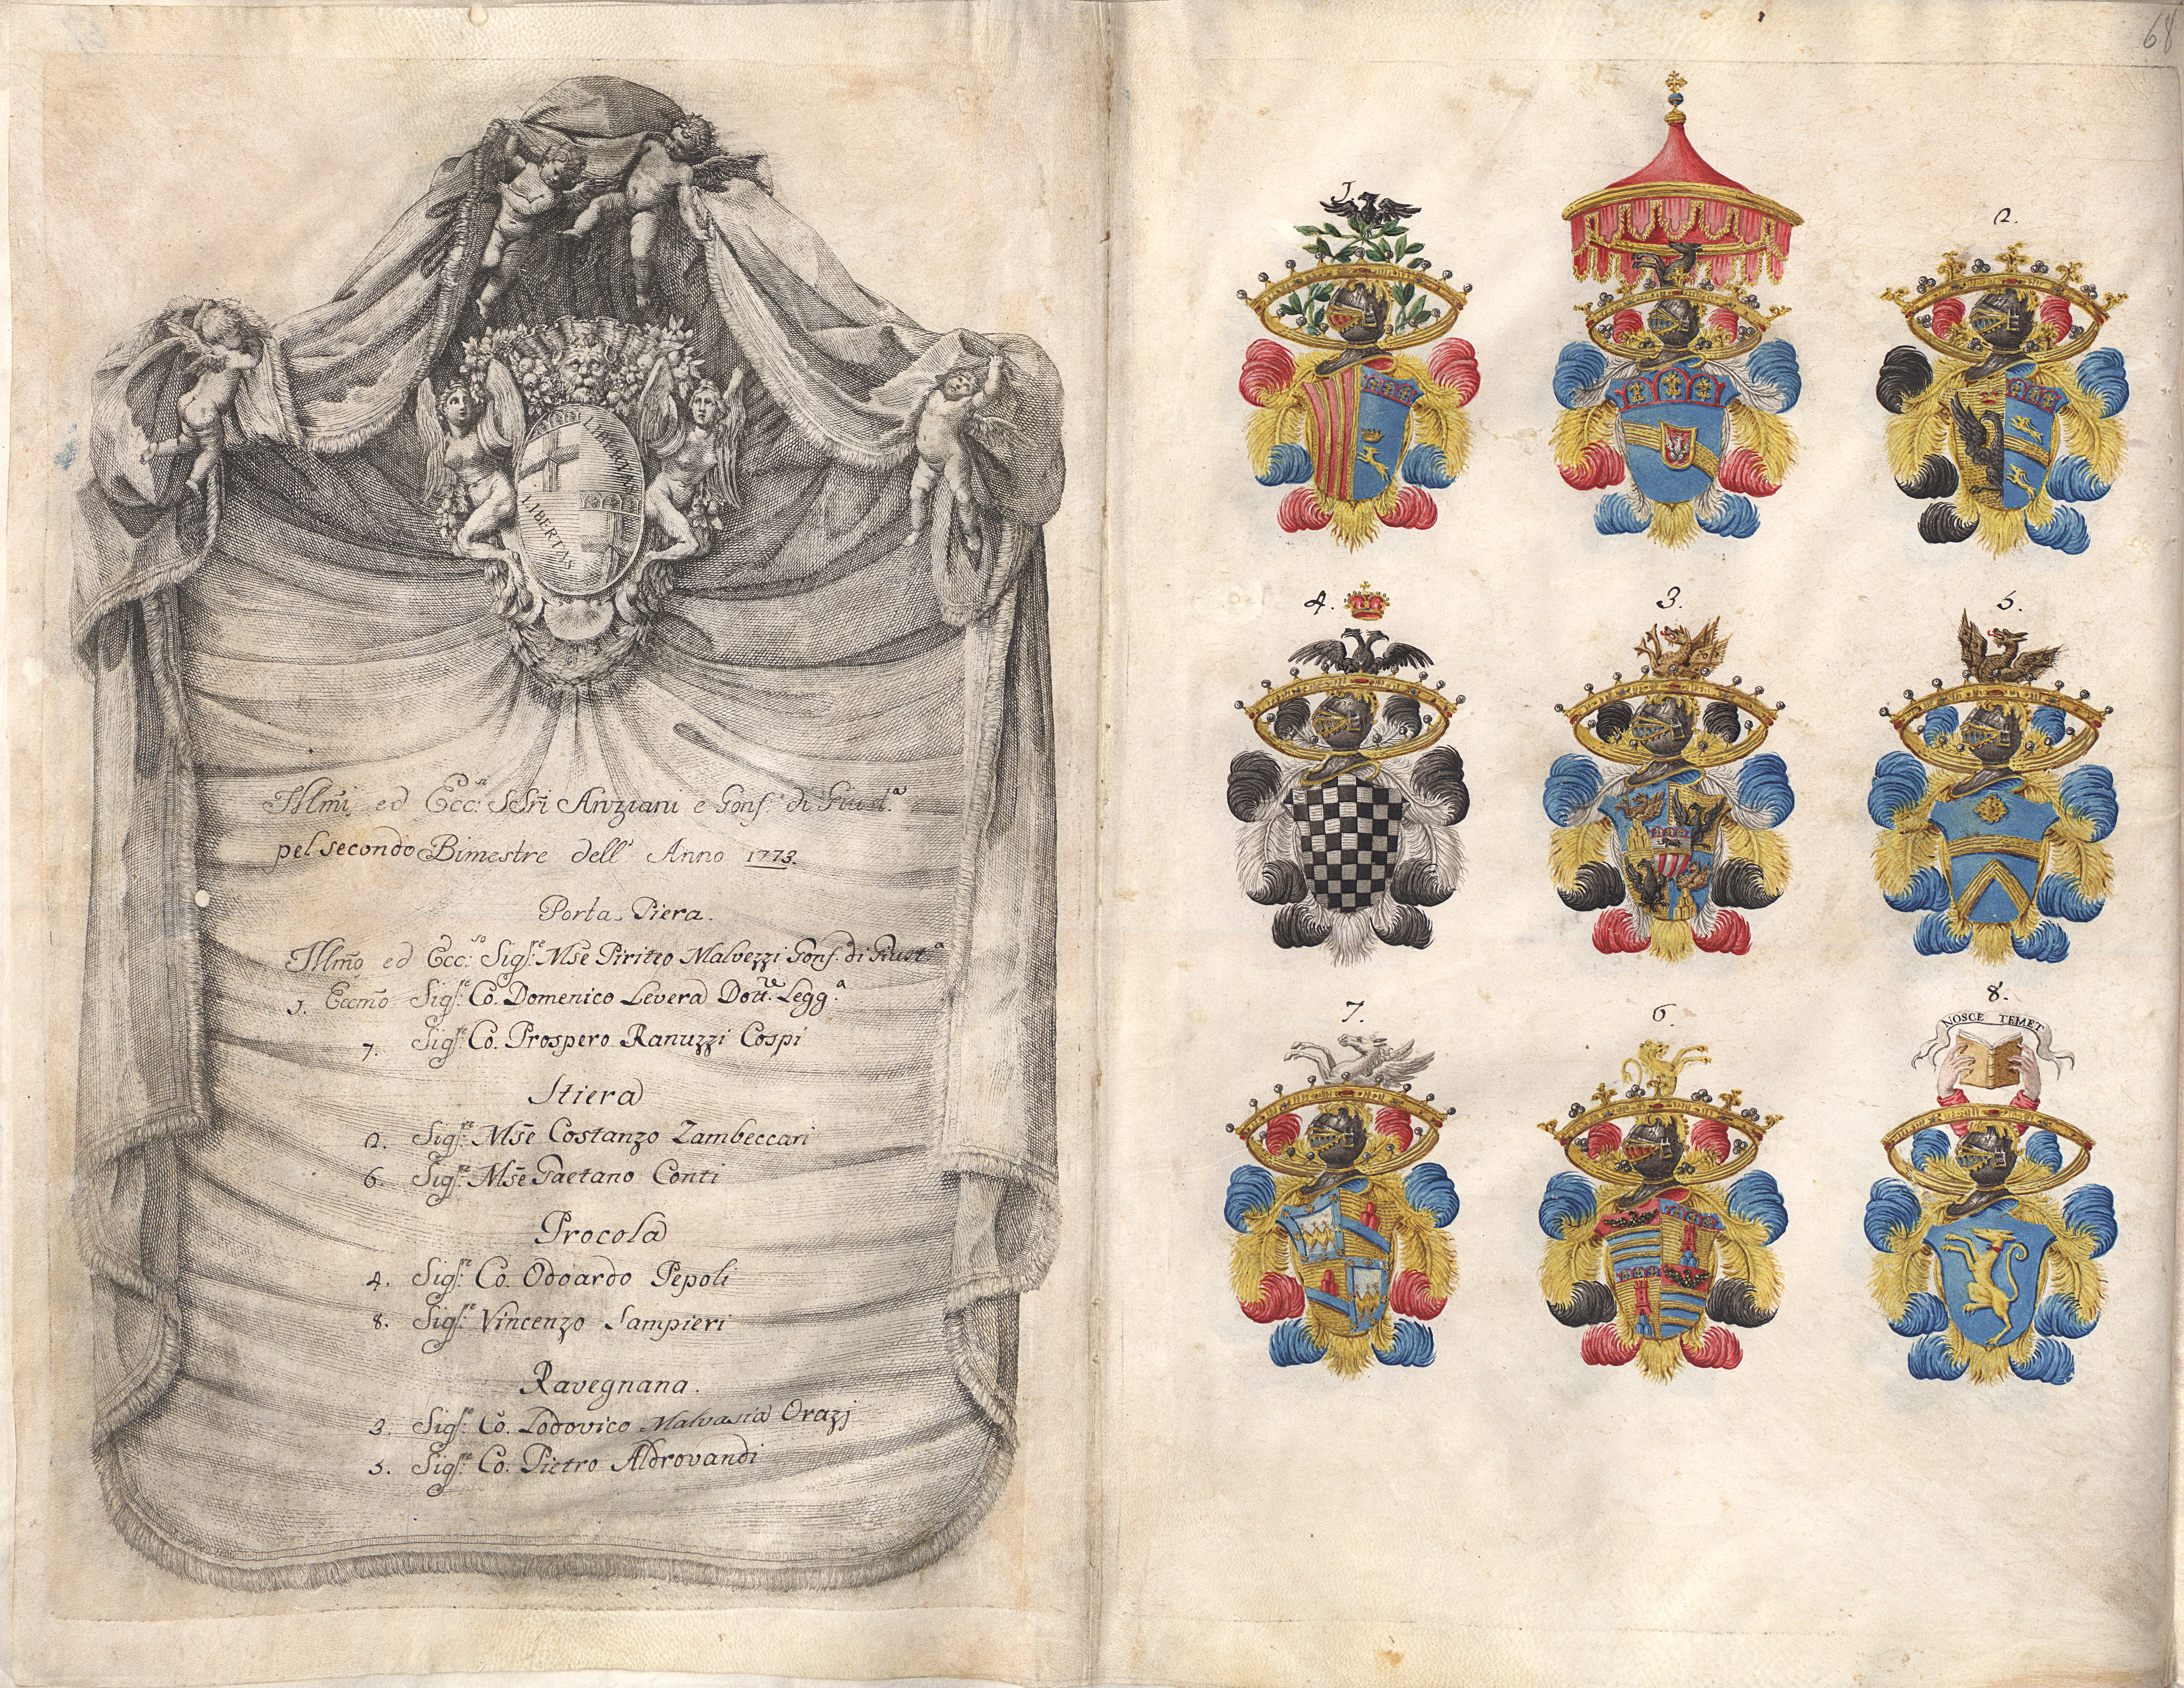 LIBERTAS
LIBERTAS
Illm̃i ed Ecc.si SSri Anziani e Gonf.i di Giust.a
pel secondo Bimestre dell' Anno 1773.
Porta Piera.
Illm̃o ed Ecc.so Sig.re Mse Piriteo Malvezzi Gonf. di Giust.a
1. Eccm̃o Sig.re Co. Domenico Levera Dott.re Legg.a
7. Sig.re Co. Prospero Ranuzzi Cospi
Stiera
2. Sig.re Mse Costanzo Zambeccari
6. Sig.re Mse Gaetano Conti
Procola
4. Sig.re Co. Odoardo Pepoli
8. Sig.re Vincenzo Sampieri
Ravegnana.
3. Sig.re Co. Lodovico Malvasia Orazj
5. Sig.re Co. Pietro Aldrovandi
68
1.
2.
4.
3.
5.
7.
6.
8.
NOSCE TEMET